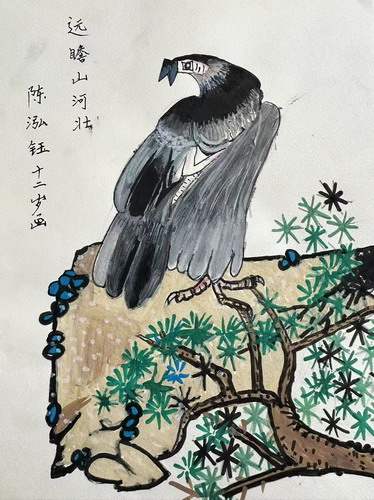 远瞻山河壮
陈泓钰十二岁画